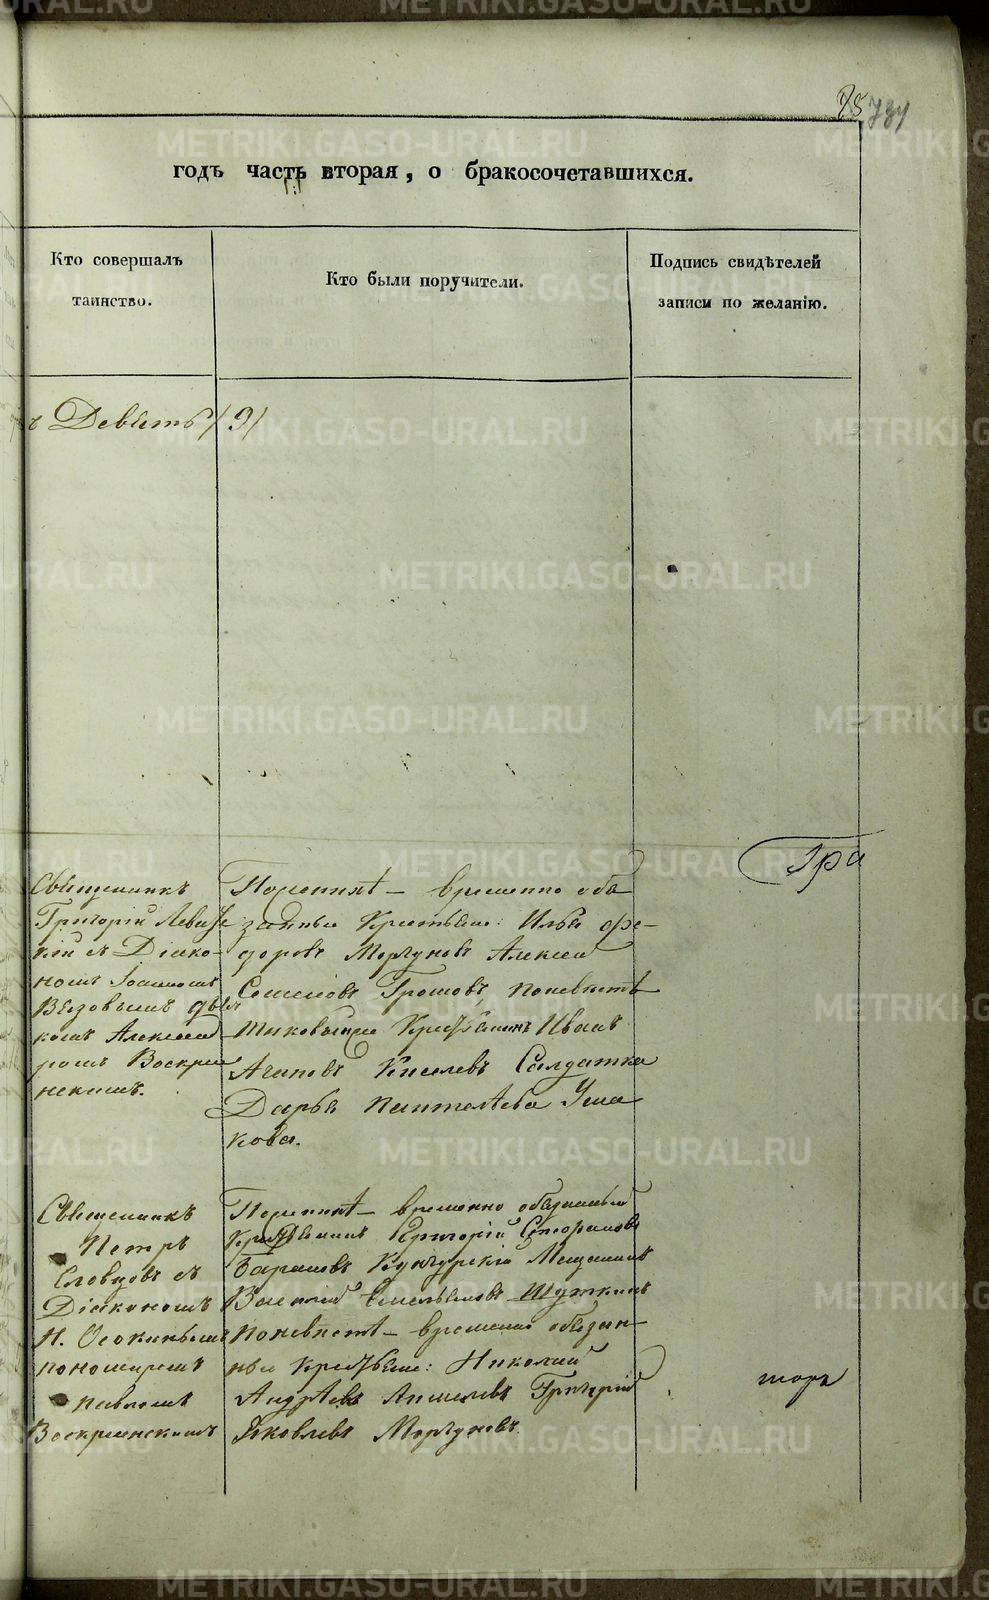 75 731
годъ часть вторая, о бракосочетавшихся.
Кто совершалъ
таинство.
Кто были поручители.
Подпись свидѣтелей
записи по желанію.
Девять /9/
Гри
Священникъ
Григорій Левиц
кій съ Діако-
номъ Іоанномъ
Вѣзовымъ дья
комъ Александ
ромъ Воскресе
нскимъ.
По женихѣ – временно обя
занные Крестьяне: Илья Фе-
доровъ Моргуновъ Алексѣй
Семеновъ Громовъ, по невѣстѣ
Крестьянинъ Иванъ
Агаповъ Киселевъ Солдатка
Дарья Пантелѣева Уша
кова.
Священникъ
Петръ
Словцовъ съ
Діакономъ
Н. Осокинымъ
пономаремъ
Павломъ
Воскресенскимъ
По женихѣ – временно обязанный
Крестьянинъ Григорій Стефановъ
Барановъ Кунгурскій Мещанинъ
Василій Емельяновъ Шуткинъ
по невѣстѣ – временно обязан-
ные Крестьяне: Николай
Андрѣевъ Григорій
Яковлевъ Моргуновъ.
горъ
METRIKI.GASO-URAL.RU